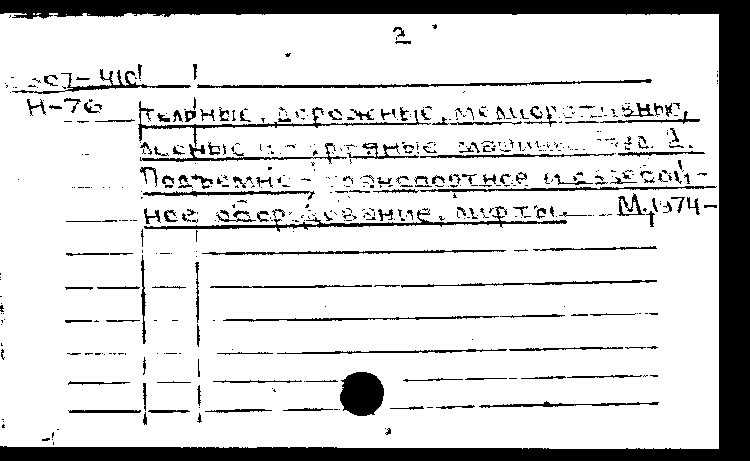 2
Н-76
тельные, дорожные, мелиоративные,
лесные и торфяные машины. Разд. 2.
Подъемно-транспортное и газебой-
ное оборудование, лифты. М., 1974-